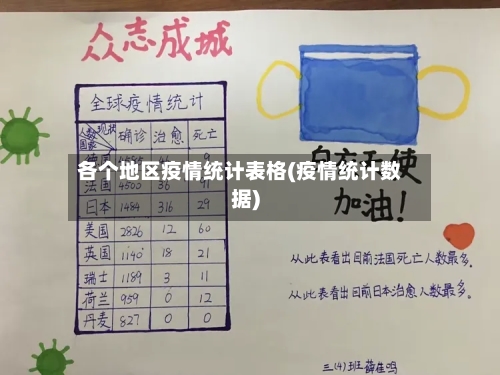 众志成城
全球疫情统计
人数 现状 国家 确诊 治愈 死亡
各个地区疫情统计表格(疫情统计数
据)
法国 4500 36 91
日本 1484 316 29
美国 2826 12 60
英国 1140 18 21
瑞士 1189 3 11
荷兰 959 0 12
丹麦 827 0 0
加油!
从此表看出目前法国死亡人数最多。
从此表看出目前日本治愈人数最多。
三(4)班